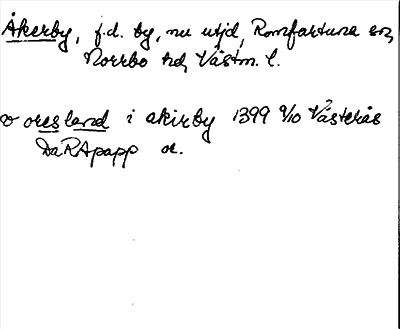 Åkerby, f.d. by, nu utjd, Romfartuna sn,
Norrbo hd, Västm. l.
v oresland i akirby 1399 9/10 Västerås
DaRApapp or.